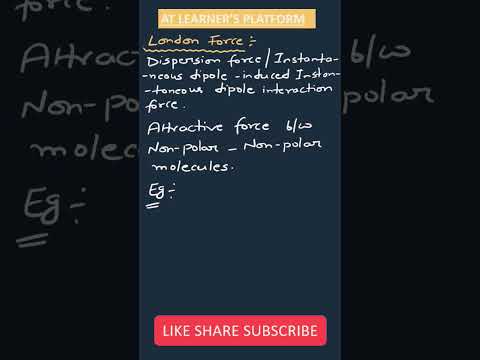 AT LEARNER'S PLATFORM
London Force :-
Dispersion force / Instanta-
-neous dipole - induced Instan-
-taneous dipole interaction
force.
Attractive force b/w
Non-polar - Non-polar
molecules.
Eg :-
LIKE SHARE SUBSCRIBE